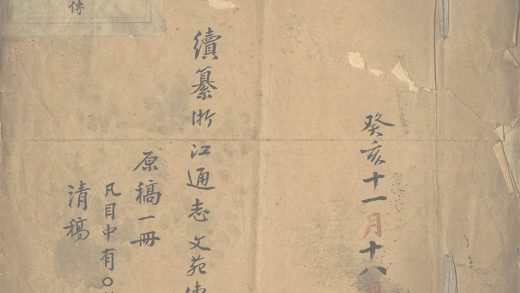 癸亥十一月十八
續纂浙江通志文苑傳
原稿一冊
凡目中有○
清稿
傳